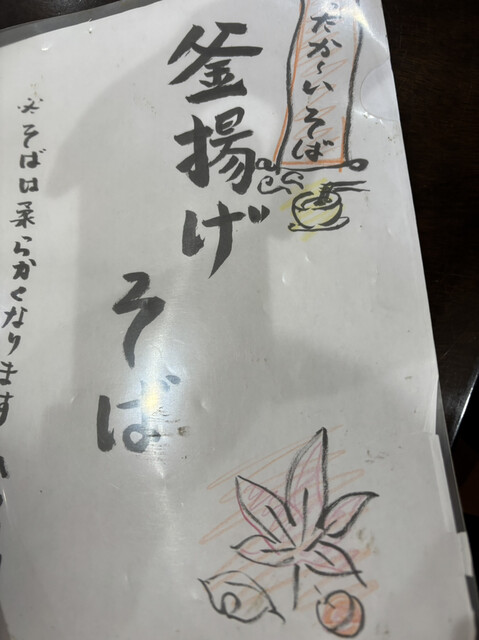 ったか〜いそば
釜揚げ
そば
※そばは柔らかくなります